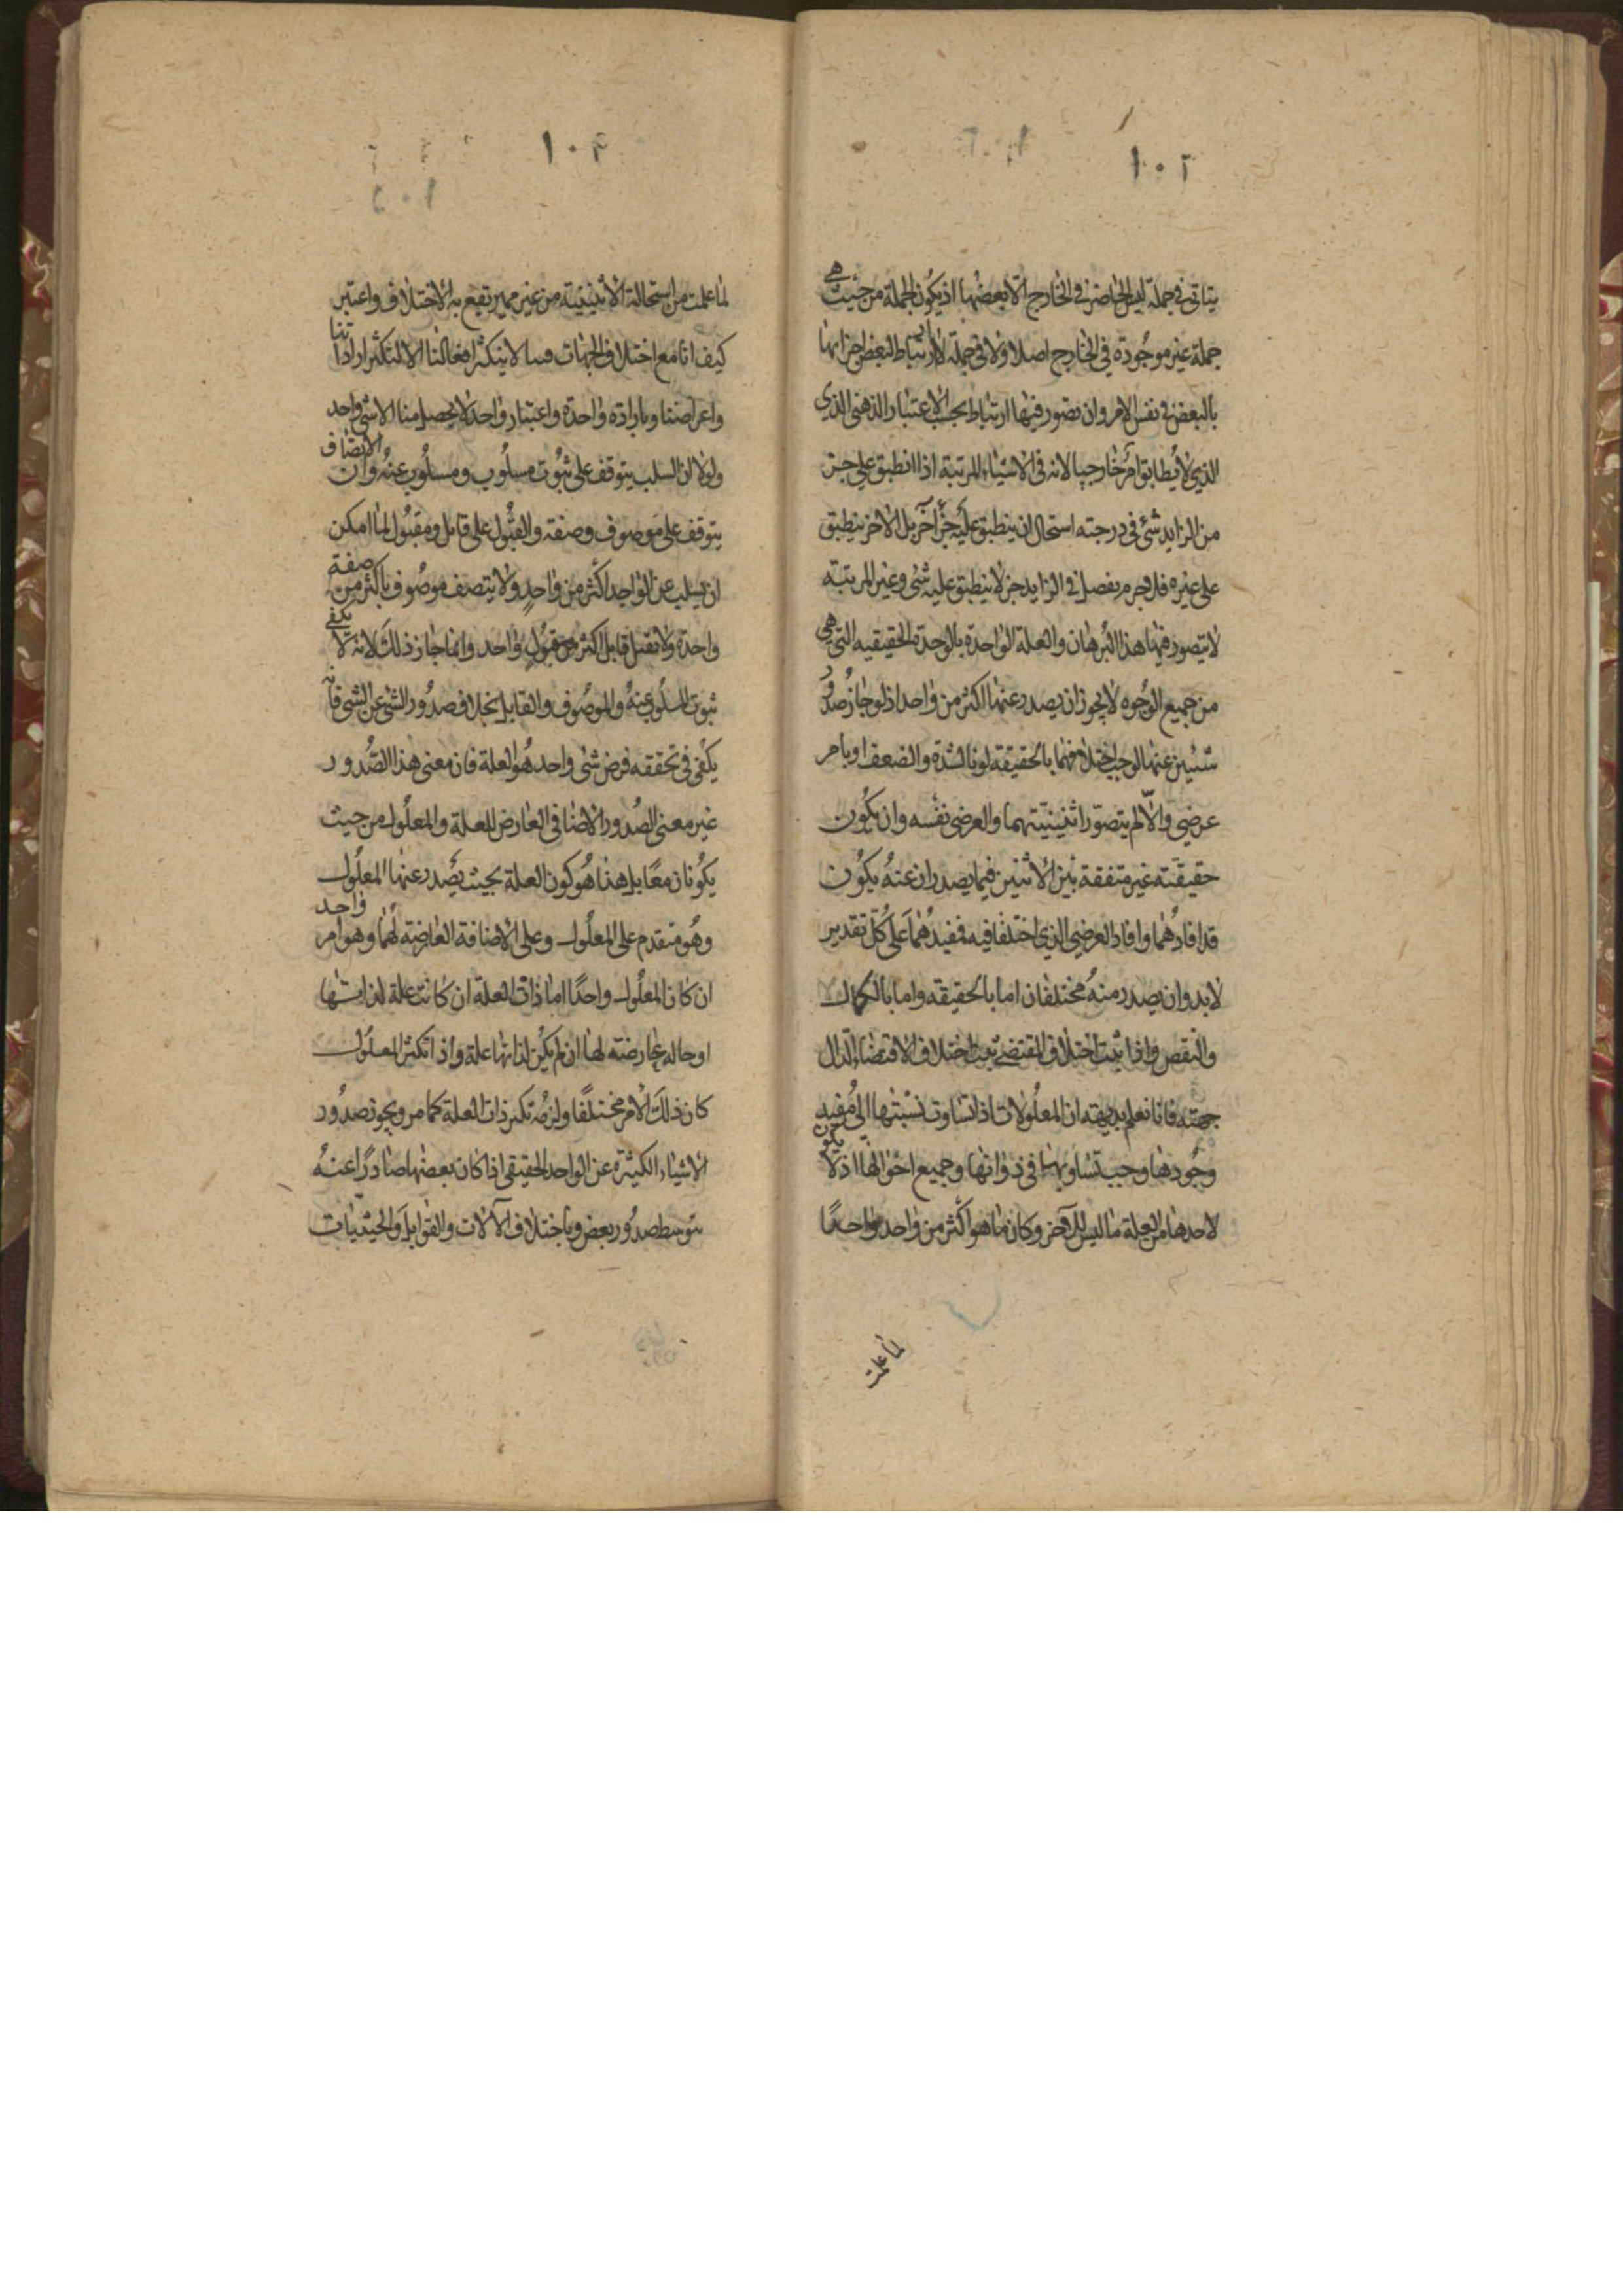 ١٠٢
يتاتى في جملة ليس الحاضر في الخارج الا بعضها اذ يكون الجملة من حيث هي
جملة غير موجودة في الخارج اصلا ولا في جملة لا ارتباط لبعض اجزائها
بالبعض في نفس الامر وان تصور فيها ارتباط بحسب الاعتبار الذهني الذي
الذي لا يطابق امر خارجيا لانه في الاشياء المرتبة اذا انطبق على جزء
من الزايد شئ في درجته استحال ان ينطبق عليه جزء آخر بل الاخر ينطبق
على غيره فلا جرم يفصل في الزايد جزء لا ينطبق عليه شئ وغير المرتبة
لا يتصور فيها هذا البرهان والعلة الواحدة بالوحدة الحقيقيه التي هي
من جميع الوجوه لا يجوز ان يصدر عنها اكثر من واحد اذ لو جاز صدور
شئين عنها لوجب اختلافهما بالحقيقة او بالشدة والضعف او بامر
عرضي والا لم يتصور اثنينيتهما والعرضي نفسه وان يكون
حقيقته غير متفقة بين الاثنين فيما يصدران عنه يكون
قد افادهما وافاد العرضي الذي اختلفا فيه فمفيدهما على كل تقدير
لابد وان يصدر منه مختلفان اما بالحقيقة واما بالكمال
والنقص واذا ثبت اختلاف المقتضى ثبت اختلاف الاقتضاء الدال
جهته فانا نعلم بديهة ان المعلولات اذا تساوت نسبتها الى مفيد
وجودها وجب تساويها في ذواتها وجميع احوالها اذ لا يكون
لاحدها من العلة ما ليس للآخر وكان ما هو اكثر من واحد واحدا
لما علمت
١٠٣
لما علمت من استحالة الاثنينية من غير مميز يقع به الاختلاف واعتبر
كيف انا مع اختلاف الجهات فينا لا يتكثر افعالنا الا لتكثر اراداتنا
واعراضنا وبارادة واحدة واعتبار واحد لا يحصل منا الا شئ واحد
ولولا ان السلب يتوقف على ثبوت مسلوب ومسلوب عنه وان الاتصاف
يتوقف على موصوف وصفة والقبول على قابل ومقبول لما امكن
ان يسلب عن الواحد اكثر من واحد ولا يتصف موصوف باكثر من صفة
واحدة ولا تقبل قابل اكثر من قبول واحد وانما جاز ذلك لانه لا يكفي
ثبوت المسلوب عنه والموصوف والقابل بخلاف صدور الشئ عن الشئ فانه
يكفي في تحققه فرض شئ واحد هو العلة فان معنى هذا الصدور
غير معنى الصدور الاضافي العارض للعلة والمعلول من حيث
يكونان معا بل هذا هو كون العلة بحيث يصدر عنها المعلول
وهو متقدم على المعلول وعلى الاضافة العارضة لهما وهو امر واحد
ان كان المعلول واحدا اما ذات العلة ان كانت علة لذاتها
او حالة عارضته لها ان لم يكن لذاتها علة واذا تكثر المعلول
كان ذلك الامر مختلفا ولزمه تكثر ذات العلة كما مر ويجوز صدور
الاشياء الكثيرة عن الواحد الحقيقي اذا كان بعضها صادرا عنه
بتوسط صدور بعض وباختلاف الآلات والقوابل والحيثيات